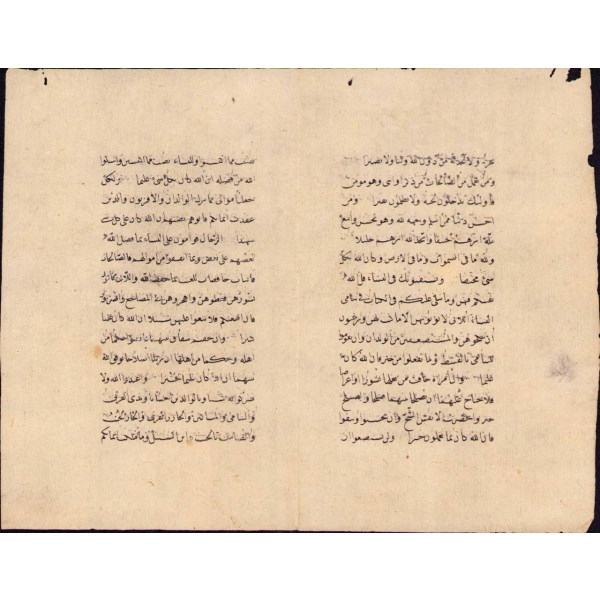 ولا يجد له من دون الله وليا ولا نصيرا
ومن يعمل من الصالحات من ذكر او انثى وهو مومن
فاولئك يدخلون الجنة ولا يظلمون نقيرا ومن
احسن دينا ممن اسلم وجهه لله وهو محسن واتبع
ملة ابرهيم حنيفا واتخذ الله ابرهيم خليلا
ولله ما فى السموات وما فى الارض وكان الله بكل
شئ محيطا ويستفتونك فى النساء قل الله
يفتيكم فيهن وما يتلى عليكم فى الكتاب فى يتامى
النساء اللاتى لا توتونهن ما كتب لهن وترغبون
ان تنكحوهن والمستضعفين من الولدان وان تقوموا
لليتامى بالقسط وما تفعلوا من خير فان الله كان به
عليما وان امراة خافت من بعلها نشوزا او اعراضا
فلا جناح عليهما ان يصلحا بينهما صلحا والصلح
خير واحضرت الانفس الشح وان تحسنوا وتتقوا
فان الله كان بما تعملون خبيرا ولن تستطيعوا ان
نصيب مما اكتسبوا وللنساء نصيب مما اكتسبن واسئلوا
الله من فضله ان الله كان بكل شئ عليما ولكل
جعلنا موالى مما ترك الوالدان والاقربون والذين
عقدت ايمانكم فاتوهم نصيبهم ان الله كان على كل شئ
شهيدا الرجال قوامون على النساء بما فضل الله
بعضهم على بعض وبما انفقوا من اموالهم فالصالحات
قانتات حافظات للغيب بما حفظ الله واللاتى تخافون
نشوزهن فعظوهن واهجروهن فى المضاجع واضربوهن
فان اطعنكم فلا تبغوا عليهن سبيلا ان الله كان عليا
كبيرا وان خفتم شقاق بينهما فابعثوا حكما من
اهله وحكما من اهلها ان يريدا اصلاحا يوفق الله
بينهما ان الله كان عليما خبيرا واعبدوا الله ولا
تشركوا به شيئا وبالوالدين احسانا وبذى القربى
واليتامى والمساكين والجار ذى القربى والجار الجنب
والصاحب بالجنب وابن السبيل وما ملكت ايمانكم